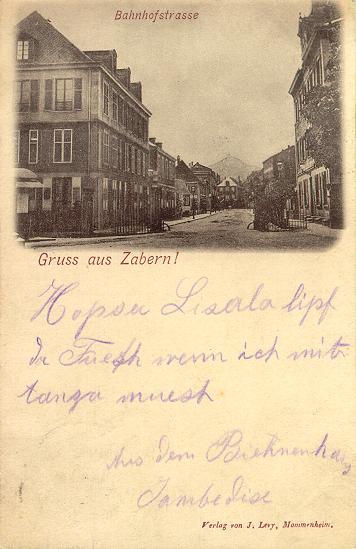 Bahnhofstrasse
Gruss aus Zabern!
Hopsa Lisala lipf
da Fuesh wenn ich mit
tanza muesh
Aus dem
Verlag von J. Levy, Mommenheim.